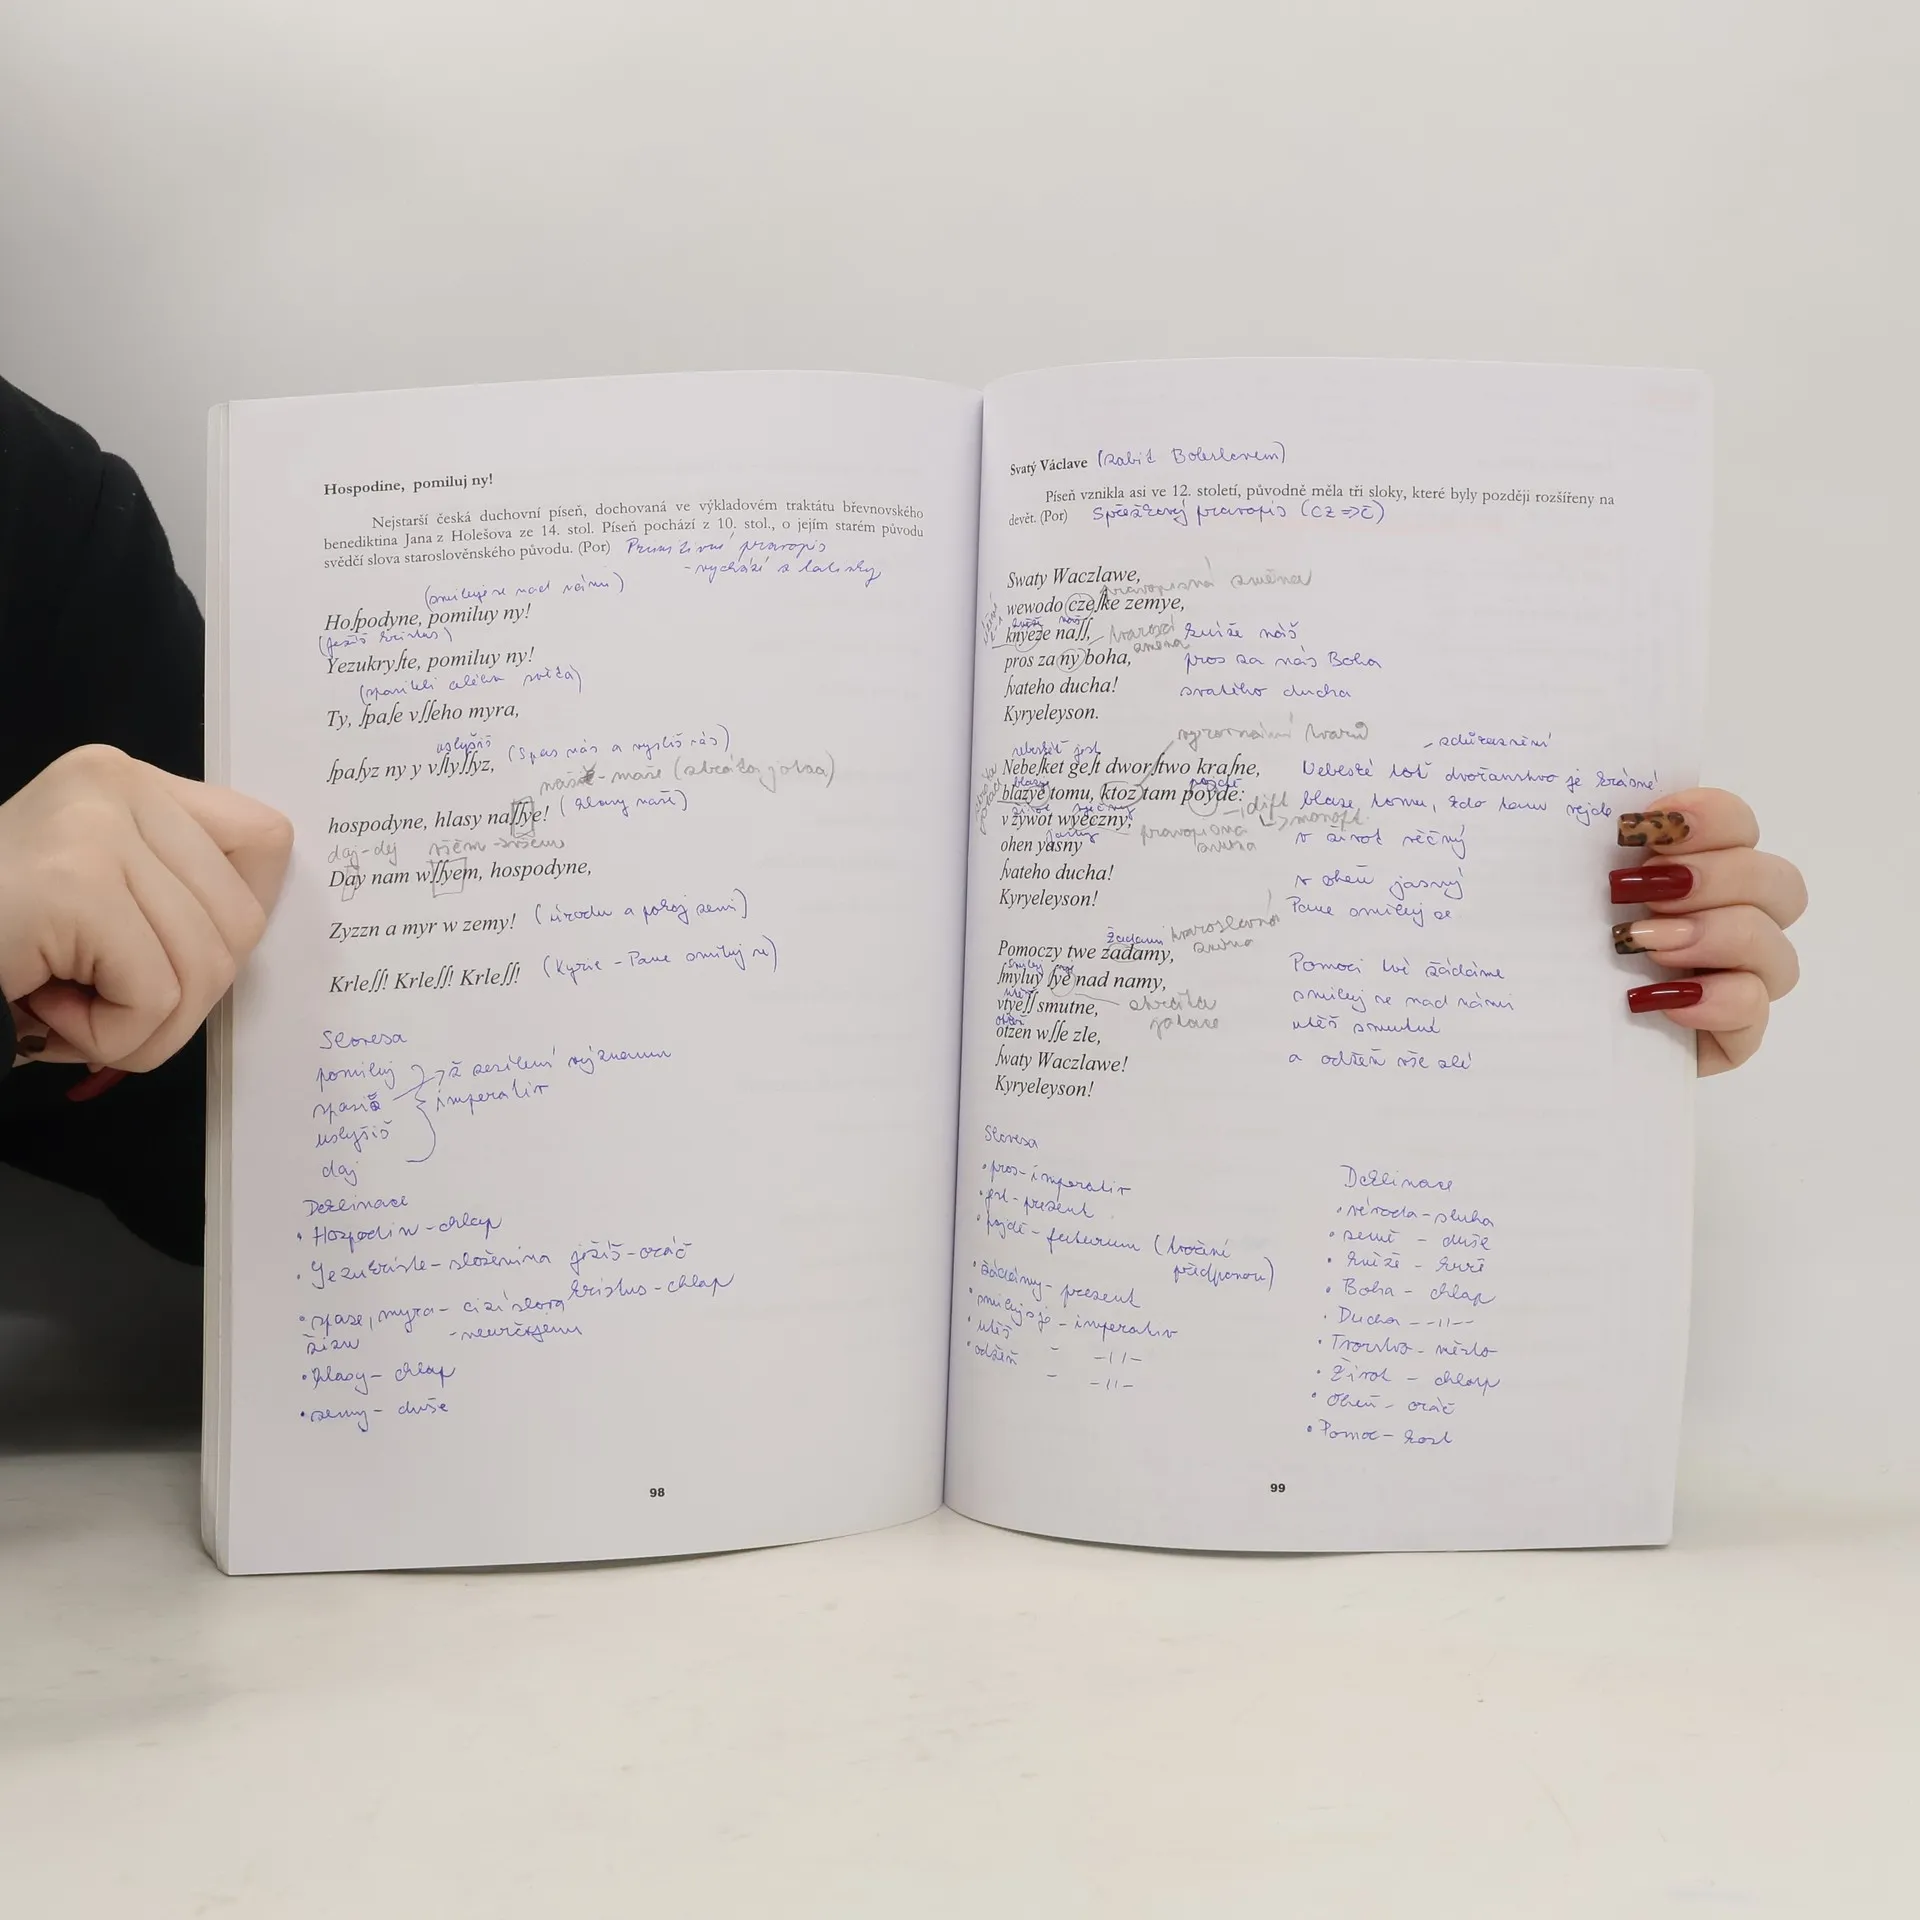 Hospodine, pomiluj ny!
Nejstarší česká duchovní píseň, dochovaná ve výkladovém traktátu břevnovského
benediktina Jana z Holešova ze 14. stol. Píseň pochází z 10. stol., o jejím starém původu
svědčí slova staroslověnského původu. (Por) Primitivní pravopis
- vychází z latinky
(smiluj se nad námi)
Hoſpodyne, pomiluy ny!
(Ježíš Kristus)
Yezukryſte, pomiluy ny!
(spasiteli celého světa)
Ty, ſpaſe vſſeho myra,
uslyšiš
ſpaſyz ny y vſlyſſyz, (Spas nás a vyslyš nás)
naše (ztráta jotace)
hospodyne, hlasy naſſye! (hlasy naše)
daj-dej všěm-všem
Day nam wſſyem, hospodyne,
Zyzzn a myr w zemy! (úrodu a pokoj zemi)
Krleſſ! Krleſſ! Krleſſ! (Kyrie - Pane smiluj se)
Slovesa
pomiluj
ž zesílení významu
spasiž
imperativ
uslyšiš
daj
Deklinace
• Hospodin - chlap
• Jezukriste - složenina ježíš - oráč
kristus - chlap
• spase, myra - cizí slova
žizn
- neurčujeme
• hlasy - chlap
• zemy - duše
98
Svatý Václave (zabit Boleslavem)
Píseň vznikla asi ve 12. století, původně měla tři sloky, které byly později rozšířeny na
devět. (Por) Spřežkový pravopis (CZ => Č)
Swaty Waczlawe,
pravopisná změna
wewodo czeſke zemye,
kněže náš
knyeze naſſ, kníže náš
tvarosl. změna
pros za ny boha, pros za nás Boha
ſvateho ducha! svatého ducha
Kyryeleyson.
vyrovnání tvarů
- zdůraznění
nebeskéť jest
Nebeſket geſt dworſtwo kraſne, Nebeské toť dvořanstvo je krásné!
blaze pojdě
blazye tomu, ktoz tam poyde: blaze tomu, kdo tam vejde
život věčný
dift
monoft.
v zywot wyeczny, v život věčný
pravopisná změna
jasný
ohen yasny v oheň jasný
ſvateho ducha!
Kyryeleyson! Pane smiluj se
žádámy
tvaroslovná změna
Pomoczy twe zadamy, Pomoci tvé žádáme
smiluj
ſmyluy ſye nad namy, smiluj se nad námi
utěš
ztráta jotace
vtyeſſ smutne, utěš smutné
otžeň
otzen wſſe zle, a odžeň vše zlé
ſwaty Waczlawe!
Kyryeleyson!
Slovesa
• pros - imperativ
• jest - prezent
• pojdě - futurum (tvoření
předponou)
• žádámy - prezent
• smiluj se - imperativ
• utěš - -11-
• odžeň - -11-
Deklinace
• vévoda - sluha
• země - duše
• kněže - kuře
• Boha - chlap
• Ducha - -11-
• Tvorstvo - město
• Život - chlap
• Oheň - oráč
• Pomoc - kost
99